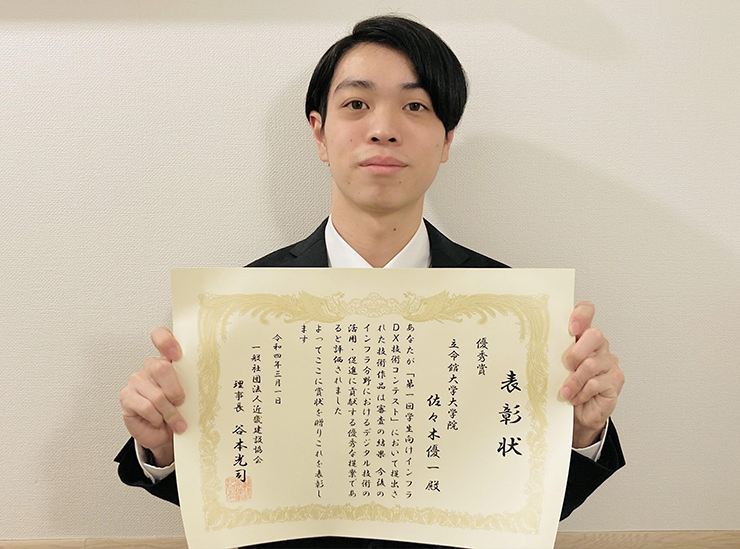 表彰状
優秀賞
立命館大学大学院
佐々木優一殿
あなたが「第一回学生向けインフラ
DX技術コンテスト」において提出さ
れた技術作品は審査の結果 今後の
インフラ分野におけるデジタル技術の
活用・促進に貢献する優秀な提案であ
ると評価されました
よってここに賞状を贈りこれを表彰し
ます
令和四年三月一日
一般社団法人近畿建設協会
理事長 谷本光司